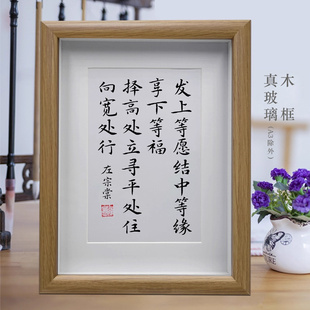 发上等愿结中等缘
享下等福
择高处立寻平处住
向宽处行
左宗棠
木框
真玻璃(A3除外)